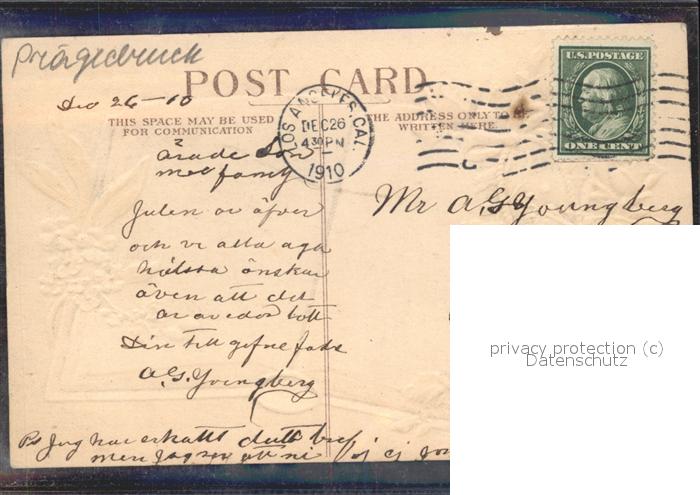 Prägedruck
POST CARD
Dec 26-10
THIS SPACE MAY BE USED
FOR COMMUNICATION
THE ADDRESS ONLY TO BE
WRITTEN HERE.
LOS ANGELES, CAL.
DEC 26
4 30 PM
1910
U.S. POSTAGE
ONE CENT
ärade Son
med famlj
Mr A. G. Youngberg
Julen är öfver
och vi alla äga
hälsa önskar
även att det
är av edor lott
Din
A. G. Youngberg
Ps Jag har erhållit ditt bref
men jag ser att ni
privacy protection (c)
Datenschutz